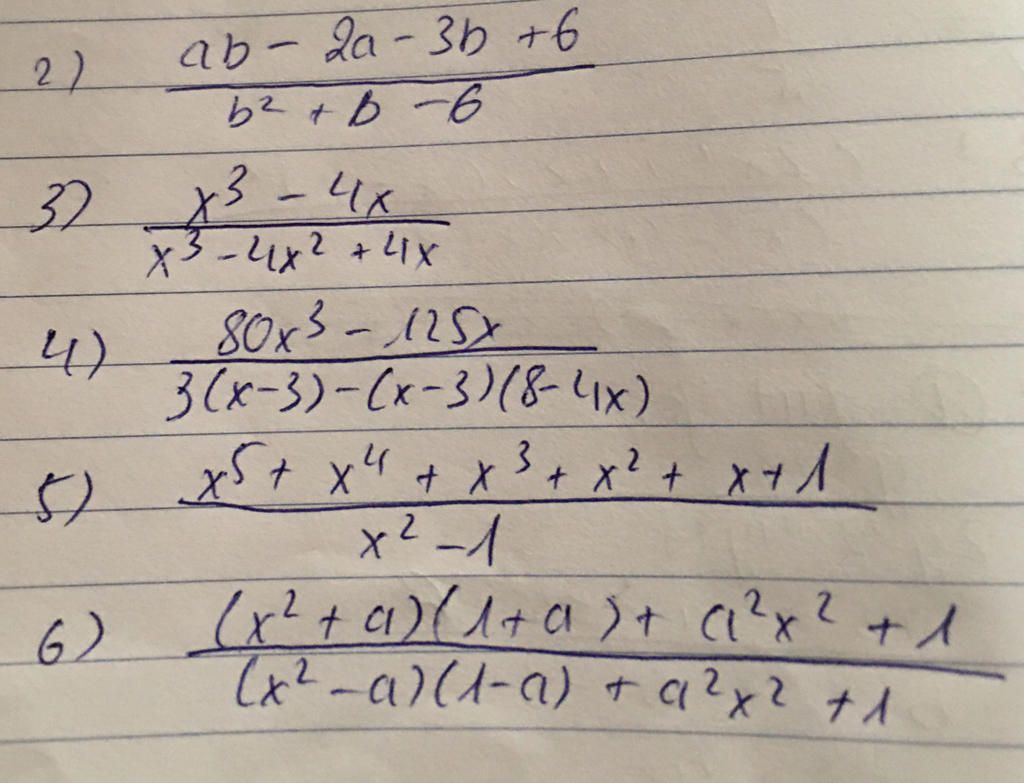 2) ab - 2a - 3b + 6
b² + b - 6
3) x³ - 4x
x³ - 4x² + 4x
4) 80x³ - 125x
3(x-3) - (x-3)(8-4x)
5) x⁵ + x⁴ + x³ + x² + x + 1
x² - 1
6) (x² + a)(1+a) + a²x² + 1
(x² - a)(1-a) + a²x² + 1